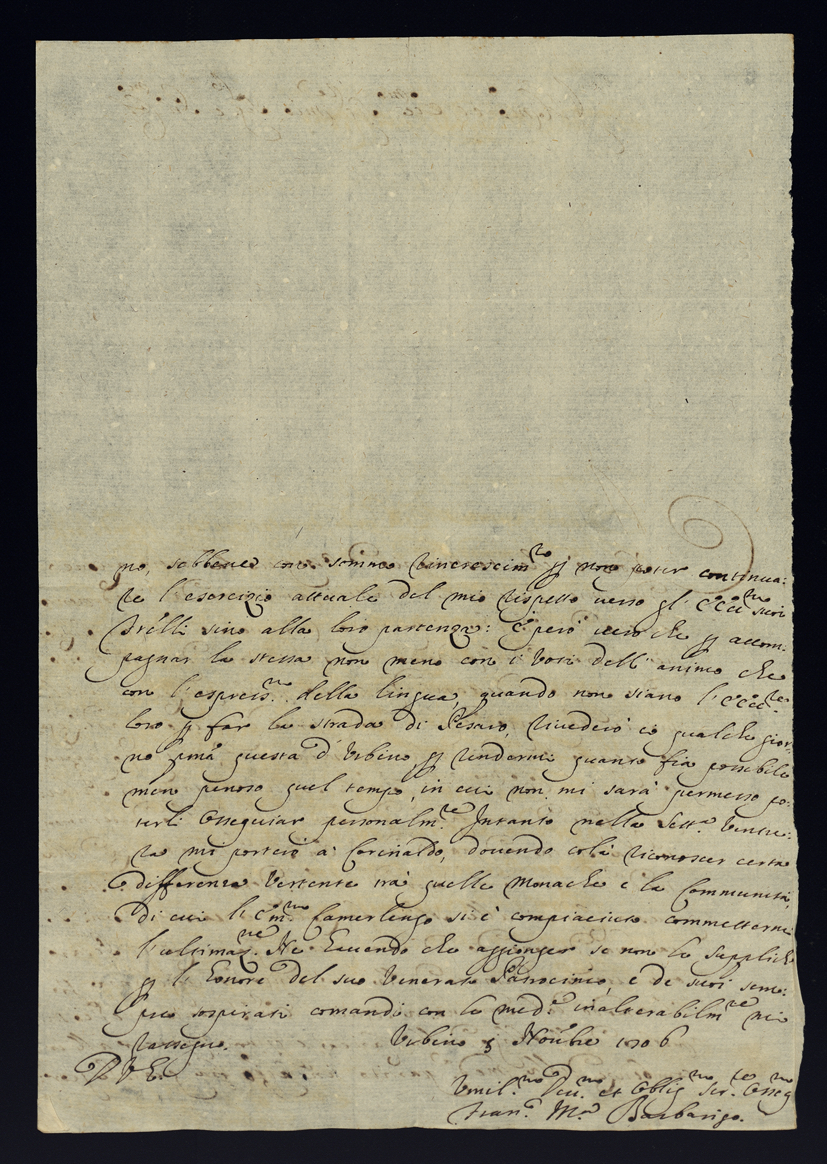 no, sebbene con sommo rincrescim.to p non poter continua:
re l'esercizio attuale del mio rispetto verso gl'Ecc.mi suoi
Fr̃elli sino alla loro partenza: È però vero che p accom:
pagnar la stessa non meno con i voti dell'animo che
con l'espress.ne della lingua, quando non siano l'Ecc.ze
loro p far la strada di Pesaro, rivederò io qualche gior:
no pma questa d'Urbino, p rendermi quanto fia possibile
meno penoso quel tempo, in cui non mi sarà permesso po:
terli ossequiar personalm.te Intanto nella Sett.a ventu:
ra mi porterò a Corinaldo, dovendo colà riconoscer certa
differenza vertente trà quelle Monache e la Communità,
di cui l'Em.mo Camerlengo si è compiaciuto commetterne
l'ultimaz.ne Ne havendo che aggionger se non le suppliche
p l'honore del suo venerato Patrocinio, e de suoi sem:
pre sospirati comandi con la med.a inalterabilm.te mi
rassegno. Urbino 5 Noṽbre 1706
D V E.
Umil.mo Dev.mo et Oblig.mo Ser.re Osseq.mo
Fran.o M.a Barbarigo.